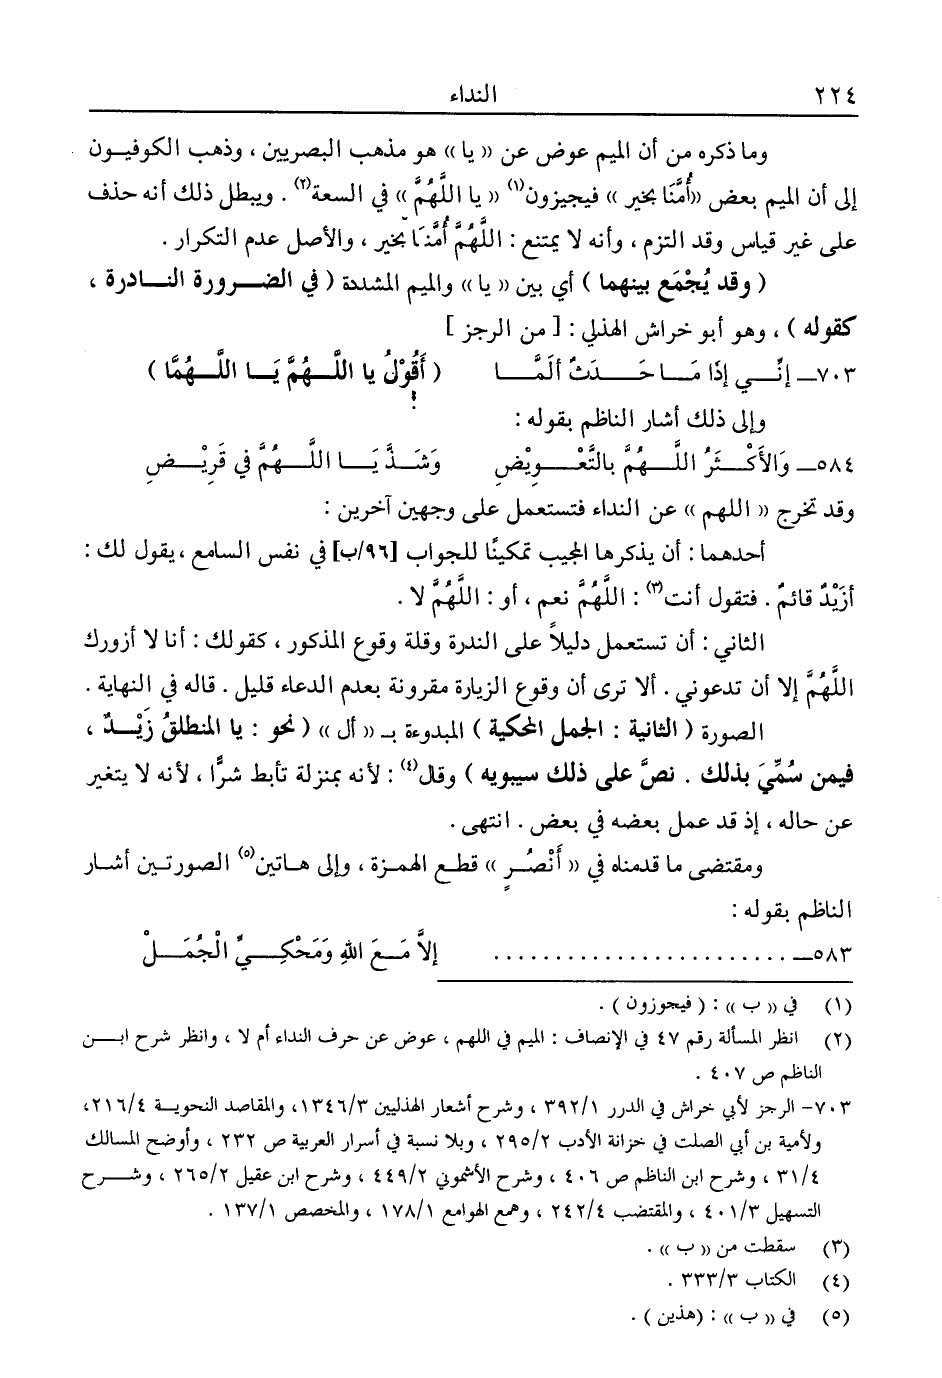 ٢٢٤ النداء
وما ذكره من أن الميم عوض عن «يا» هو مذهب البصريين ، وذهب الكوفيون
إلى أن الميم بعض «أُمَّنَا بخير» فيجيزون(١) «يا اللَّهُمَّ» في السعة(٢) . ويبطل ذلك أنه حذف
على غير قياس وقد التزم ، وأنه لا يمتنع : اللَّهُمَّ أُمَّنَا بخير ، والأصل عدم التكرار .
( وقد يُجْمَع بينهما ) أي بين «يا» والميم المشددة ( في الضرورة النادرة ،
كقوله ) ، وهو أبو خراش الهذلي : [ من الرجز ]
٧٠٣ـ إنِّي إذَا مَا حَدَثٌ ألَمَّا ( أَقُوْلُ يا اللَّهُمَّ يَا اللَّهُمَّا )
وإلى ذلك أشار الناظم بقوله :
٥٨٤ـ وَالأَكْثَرُ اللَّهُمَّ بالتَّعْوِيْضِ وَشَذَّ يَا اللَّهُمَّ في قَرِيْضِ
وقد تخرج «اللهم» عن النداء فتستعمل على وجهين آخرين :
أحدهما : أن يذكرها المجيب تمكينًا للجواب [٩٦/ب] في نفس السامع ، يقول لك :
أزَيْدٌ قائمٌ . فتقول أنت(٣) : اللَّهُمَّ نعم ، أو : اللَّهُمَّ لا .
الثاني : أن تستعمل دليلاً على الندرة وقلة وقوع المذكور ، كقولك : أنا لا أزورك
اللَّهُمَّ إلا أن تدعوني . ألا ترى أن وقوع الزيارة مقرونة بعدم الدعاء قليل . قاله في النهاية .
الصورة ( الثانية : الجمل المحكية ) المبدوءة بـ «أل» ( نحو : يا المنطلقُ زَيْدٌ ،
فيمن سُمِّيَ بذلك . نصَّ على ذلك سيبويه ) وقال(٤) : لأنه بمنزلة تأبط شرًّا ، لأنه لا يتغير
عن حاله ، إذ قد عمل بعضه في بعض . انتهى .
ومقتضى ما قدمناه في «أُنْصُرٍ» قطع الهمزة ، وإلى هاتين(٥) الصورتين أشار
الناظم بقوله :
٥٨٣ـ ........................ إلاَّ مَعَ اللهِ وَمَحْكِيِّ الْجُمَلْ
(١) في «ب» : ( فيجوزون ) .
(٢) انظر المسألة رقم ٤٧ في الإنصاف : الميم في اللهم ، عوض عن حرف النداء أم لا ، وانظر شرح ابن
الناظم ص ٤٠٧ .
٧٠٣- الرجز لأبي خراش في الدرر ٣٩٢/١ ، وشرح أشعار الهذليين ١٣٤٦/٣، والمقاصد النحوية ٢١٦/٤،
ولأمية بن أبي الصلت في خزانة الأدب ٢٩٥/٢ ، وبلا نسبة في أسرار العربية ص ٢٣٢ ، وأوضح المسالك
٣١/٤ ، وشرح ابن الناظم ص ٤٠٦ ، وشرح الأشموني ٤٤٩/٢ ، وشرح ابن عقيل ٢٦٥/٢ ، وشرح
التسهيل ٤٠١/٣ ، والمقتضب ٢٤٢/٤ ، وهمع الهوامع ١٧٨/١ ، والمخصص ١٣٧/١ .
(٣) سقطت من «ب» .
(٤) الكتاب ٣٣٣/٣ .
(٥) في «ب» : (هذين ) .